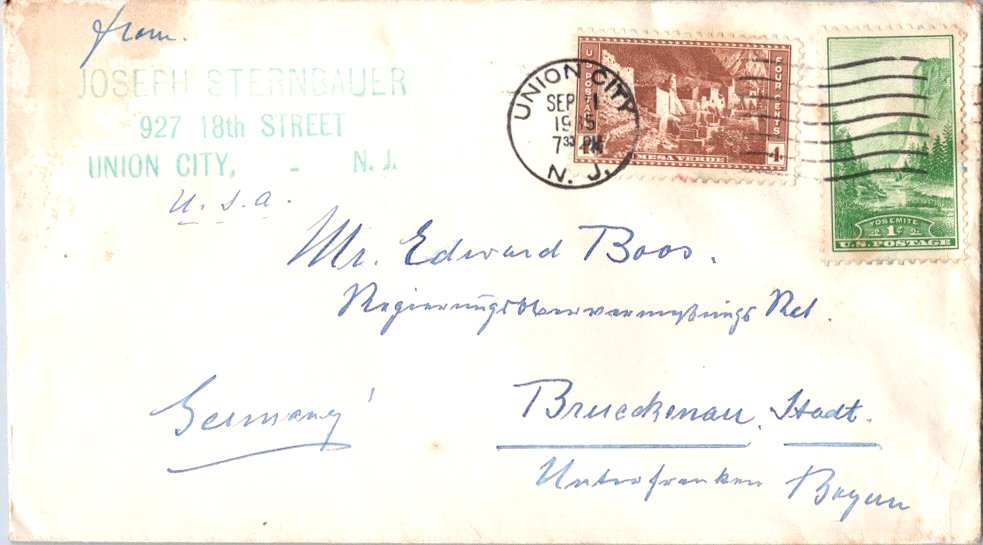 from.
JOSEPH STERNBAUER
927 18th STREET
UNION CITY, - N. J.
U. S. A.
UNION CITY
SEP 1
19 5
7 30 PM
N. J.
U.S. POSTAGE
FOUR CENTS
MESA VERDE
4
YOSEMITE
1¢
U.S. POSTAGE
Mr. Edward Boos.
Rat.
Germany!
Brueckenau, Stadt.
Unterfranken Bayern